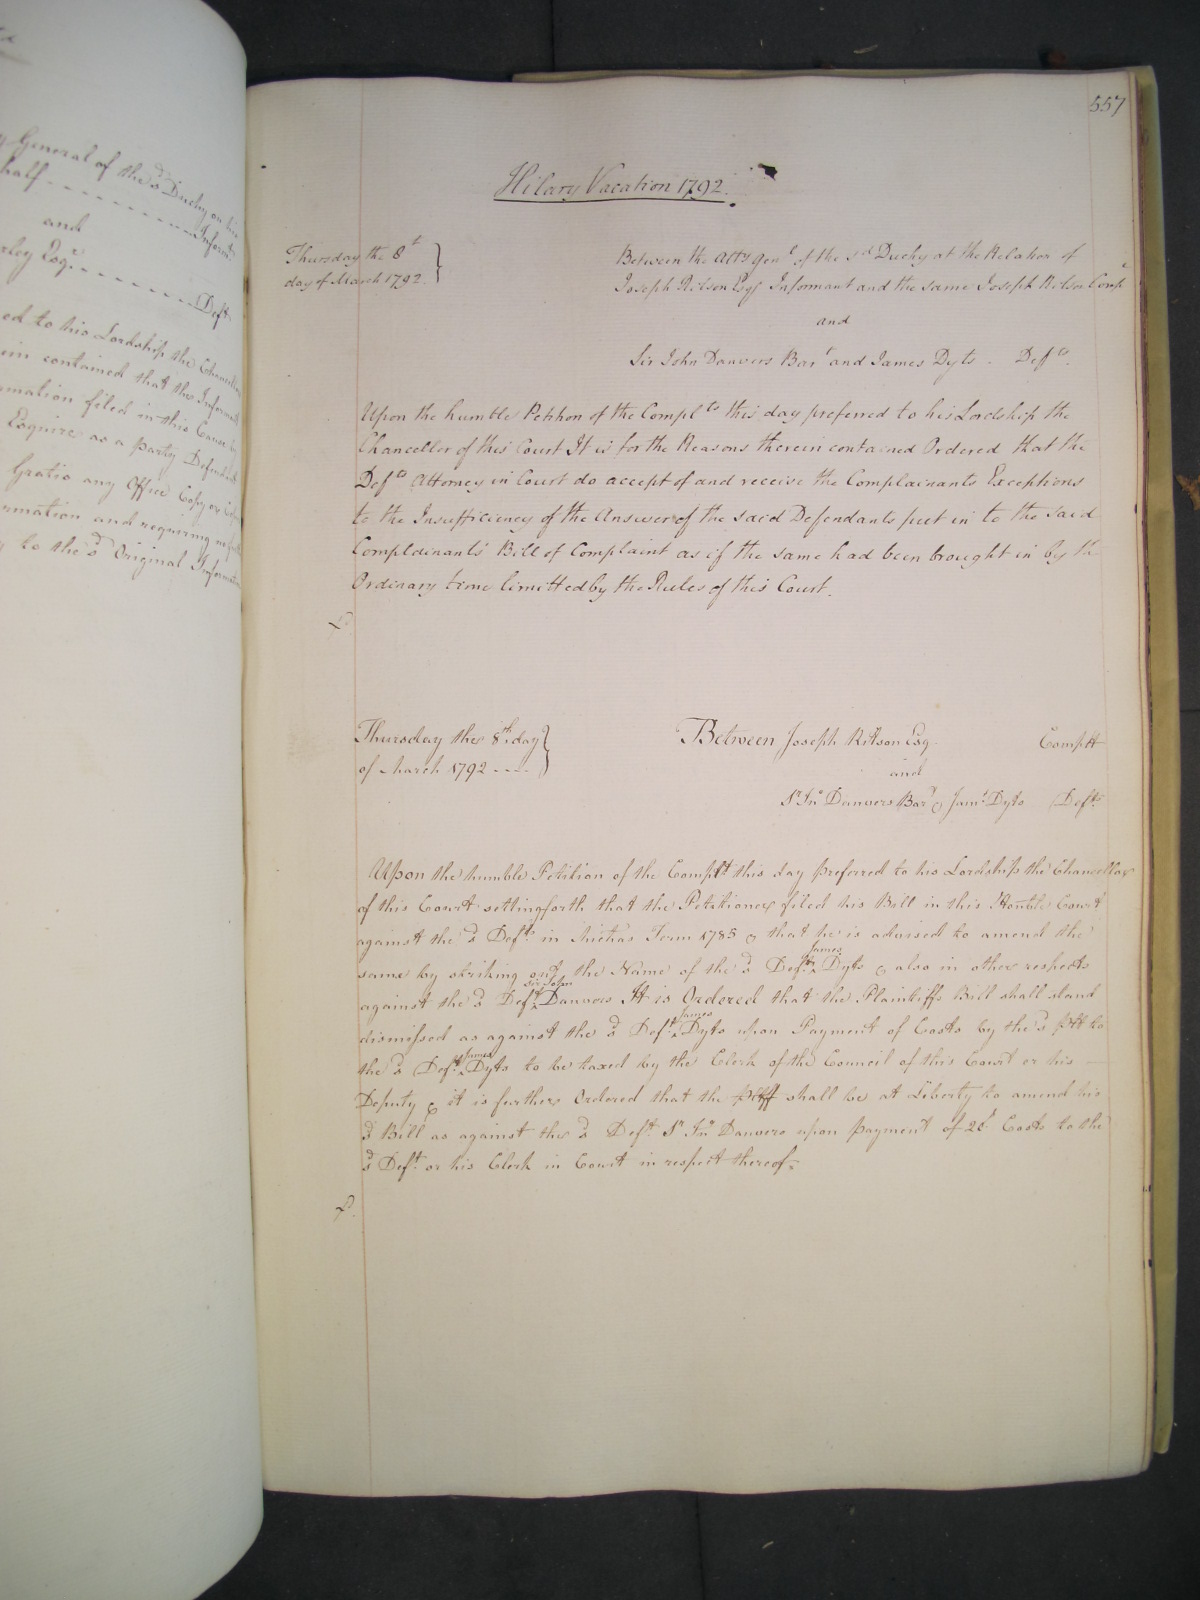 y General of the sd Duchy on his
half - - - - - - - - - - Informt
and
rley Esqr - - - - - - - Deft
ed to his Lordship the Chancellor
ein contained that the Informt
rmation filed in this Cause by
Esquire as a party Defendant
Gratis any Office Copy or Cop
rmation and requiring no furth
y to the sd Original Information
557
Hilary Vacation 1792.
Thursday the 8t
day of March 1792. }
Between the Atty Genl of the sd Duchy at the Relation of
Joseph Ritson Esqr Informant and the same Joseph Ritson Compt
and
Sir John Danvers Bart and James Dyts - Defts.
Upon the humble Petition of the Complts this day preferred to his Lordship the
Chancellor of this Court It is for the Reasons therein contained Ordered that the
Defts Attorney in Court do accept of and receive the Complainants Exceptions
to the Insufficiency of the Answer of the said Defendants put in to the said
Complainants' Bill of Complaint as if the same had been brought in by the
Ordinary time limitted by the Rules of this Court.
Thursday the 8th day }
of March 1792 ----
Between Joseph Ritson Esq Complt
and
Sr Jno Danvers Bart & Jams Dyts Defts
Upon the humble Petition of the Complt this day preferred to his Lordship the Chancellor
of this Court setting forth that the Petitioner filed his Bill in this Honble Court
against the sd Defts in Michas Term 1785 & that he is advised to amend the
same by striking out the Name of the sd Deft James Dyts & also in other respects
against the sd Deft Sir John Danvers It is Ordered that the Plaintiffs Bill shall stand
dismissed as against the sd Deft James Dyts upon Payment of Costs by the sd Ptt to
the sd Deft James Dyts to be taxed by the Clerk of the Council of this Court or his —
Deputy & it is further Ordered that the Pltff shall be at Liberty to amend his
sd Bill as against the sd Deft Sr Jno Danvers upon payment of 20s Costs to the
sd Deft or his Clerk in Court in respect thereof.